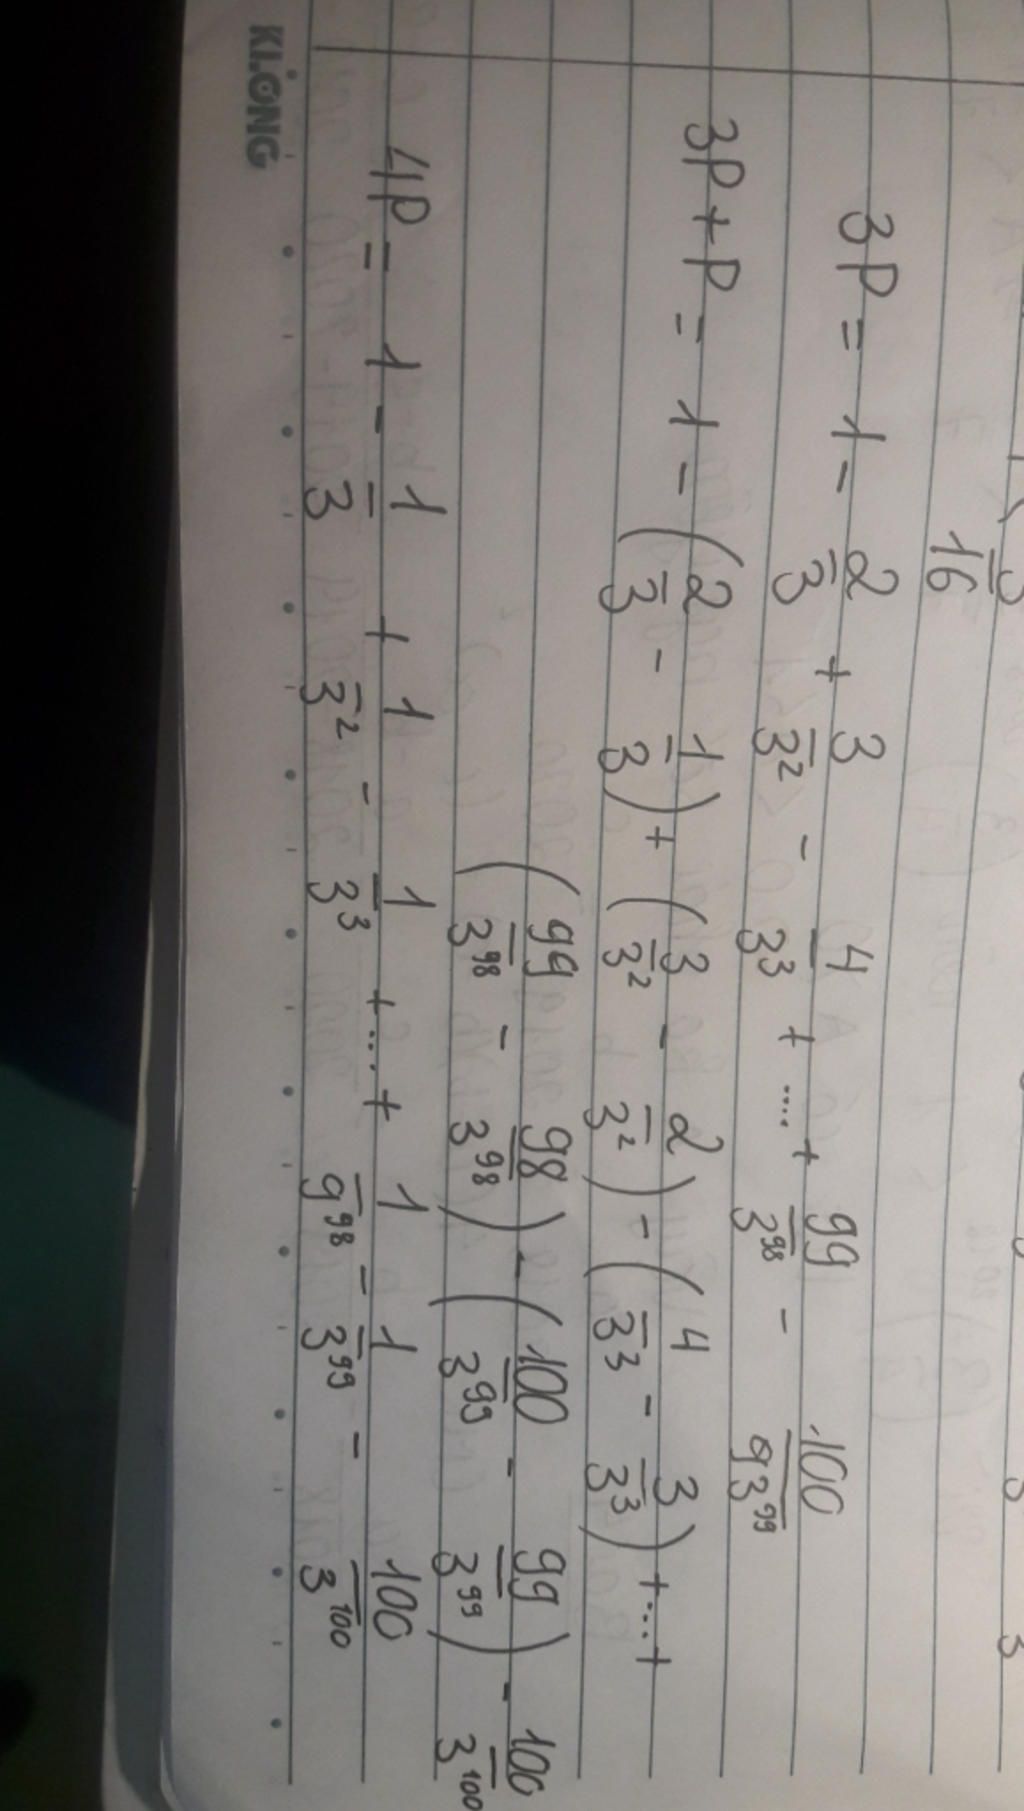 3
16
3P = 1 - 2/3 + 3/3² - 4/3³ + .... + 99/3⁹⁸ - 100/93⁹⁹
3P + P = 1 - (2/3 - 1/3) + (3/3² - 2/3²) - (4/3³ - 3/3³) + ... +
(99/3⁹⁸ - 98/3⁹⁸) - (100/3⁹⁹ - 99/3⁹⁹) - 100/3¹⁰⁰
4P = 1 - 1/3 + 1/3² - 1/3³ + ... + 1/9⁹⁸ - 1/3⁹⁹ - 100/3¹⁰⁰
KLONG